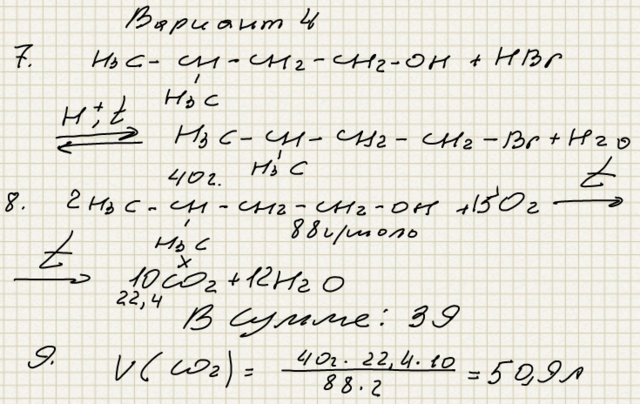 Вариант 4
7. H3C - CH - CH2 - CH2 - OH + HBr
H3C
H+, t
H3C - CH - CH2 - CH2 - Br + H2O
40г. H3C
8. 2H3C - CH - CH2 - CH2 - OH + 15O2 t
H3C 88г/моль
t x
10CO2 + 12H2O
22,4
В сумме: 39
9. V(CO2) = 40г. 22,4. 10 / 88. 2 = 50,9л